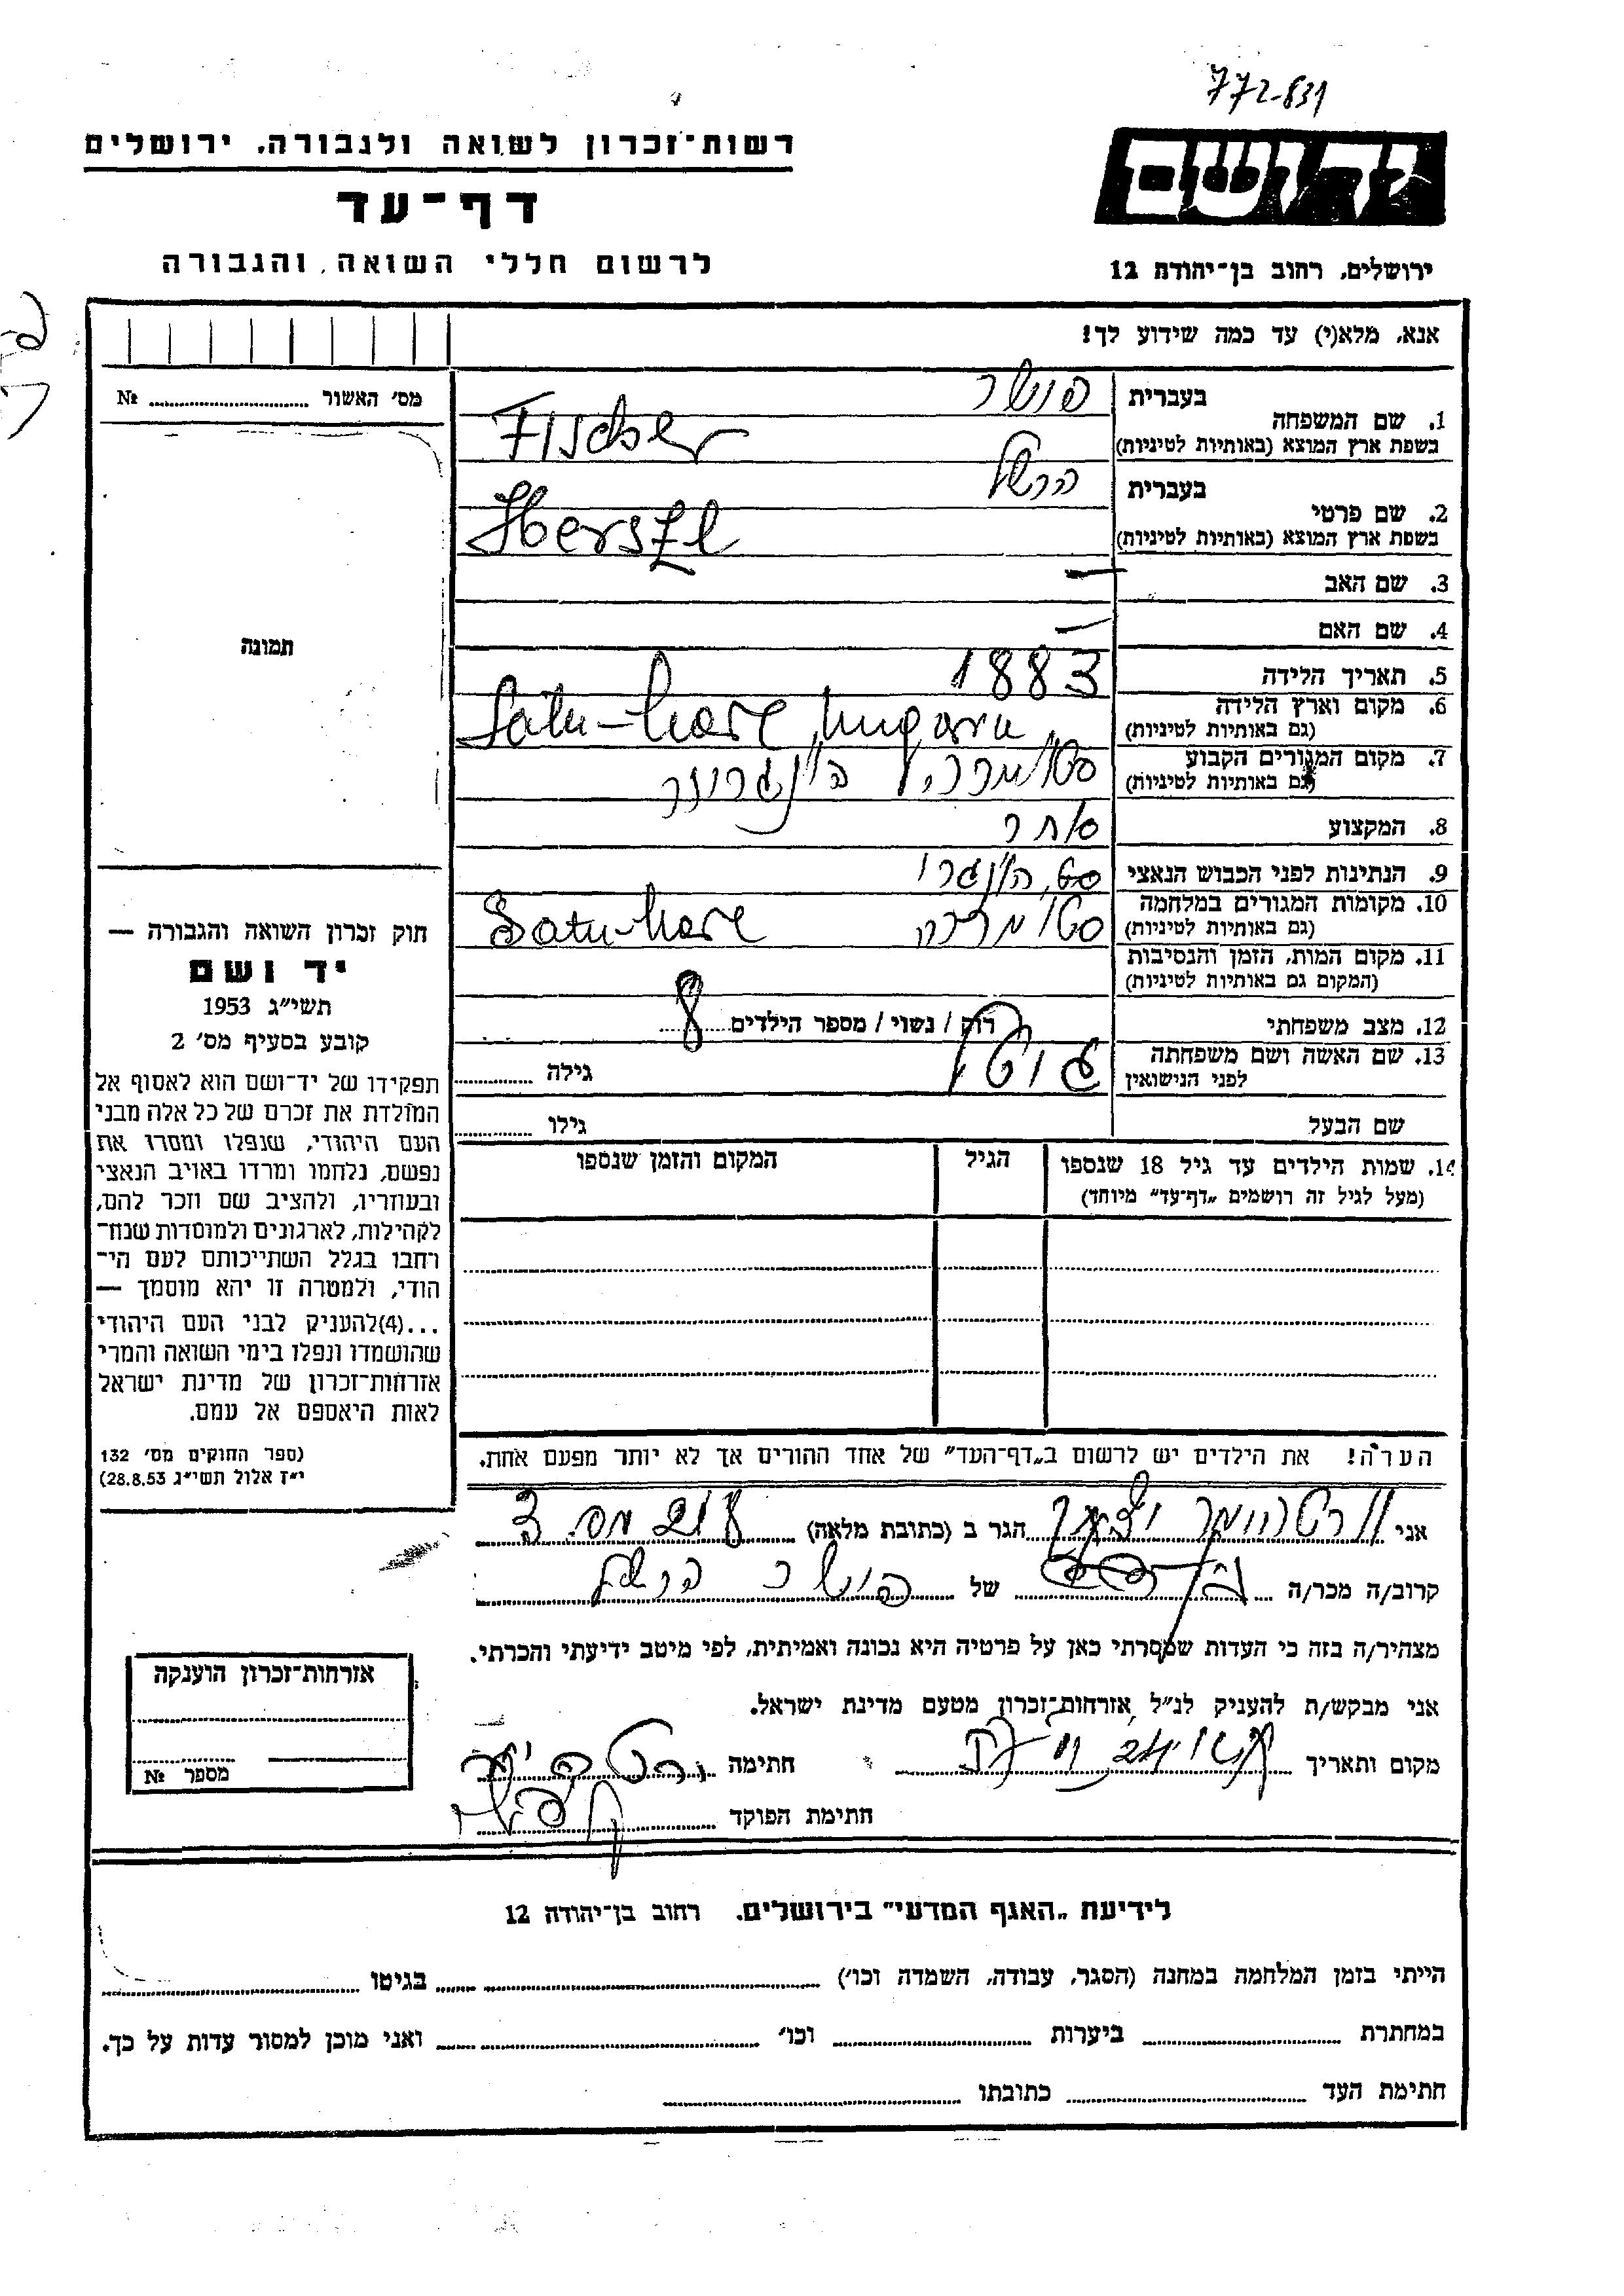 772-831
רשות־זכרון לשואה ולגבורה, ירושלים
דף־עד
לרשום חללי השואה והגבורה
יד ושם
ירושלים, רחוב בן־יהודה 12
אנא, מלא(י) עד כמה שידוע לך!
מס׳ האשור № 
1. שם המשפחה בעברית פישר
בשפת ארץ המוצא (באותיות לטיניות) Fischer
2. שם פרטי בעברית הרשל
בשפת ארץ המוצא (באותיות לטיניות) Herszl
3. שם האב —
4. שם האם —
5. תאריך הלידה 1883
6. מקום וארץ הלידה (גם באותיות לטיניות) Satu-Mare, Ungaru
7. מקום המגורים הקבוע (גם באותיות לטיניות)
8. המקצוע סוחר
9. הנתינות לפני הכבוש הנאצי
10. מקומות המגורים במלחמה (גם באותיות לטיניות) Satu-Mare
11. מקום המות, הזמן והנסיבות (המקום גם באותיות לטיניות)
12. מצב משפחתי רוק / נשוי / מספר הילדים 8
13. שם האשה ושם משפחתה לפני הנישואין גילה
שם הבעל גילו
14. שמות הילדים עד גיל 18 שנספו הגיל המקום והזמן שנספו
(מעל לגיל זה רושמים „דף־עד״ מיוחד)
הערה! את הילדים יש לרשום ב„דף־העד״ של אחד ההורים אך לא יותר מפעם אחת.
תמונה
חוק זכרון השואה והגבורה —
יד ושם
תשי״ג 1953
קובע בסעיף מס׳ 2
תפקידו של יד־ושם הוא לאסוף אל
המולדת את זכרם של כל אלה מבני
העם היהודי, שנפלו ומסרו את
נפשם, נלחמו ומרדו באויב הנאצי
ובעוזריו, ולהציב שם וזכר להם,
לקהילות, לארגונים ולמוסדות שנח־
רחבו בגלל השתייכותם לעם הי־
הודי, ולמטרה זו יהא מוסמך —
...(4)להעניק לבני העם היהודי
שהושמדו ונפלו בימי השואה והמרי
אזרחות־זכרון של מדינת ישראל
לאות היאספם אל עמם.
(ספר החוקים מס׳ 132
י״ז אלול תשי״ג 28.8.53)
אני הגר ב (כתובת מלאה)
קרוב/ה מכר/ה של פישר הרשל
מצהיר/ה בזה כי העדות שמסרתי כאן על פרטיה היא נכונה ואמיתית, לפי מיטב ידיעתי והכרתי.
אני מבקש/ת להעניק לנ״ל אזרחות־זכרון מטעם מדינת ישראל.
מקום ותאריך חתימה
חתימת הפוקד
אזרחות־זכרון הוענקה
מספר №
לידיעת „האגף המדעי״ בירושלים. רחוב בן־יהודה 12
הייתי בזמן המלחמה במחנה (הסגר, עבודה, השמדה וכו׳) בגיטו
במחתרת ביערות וכו׳ ואני מוכן למסור עדות על כך.
חתימת העד כתובתו